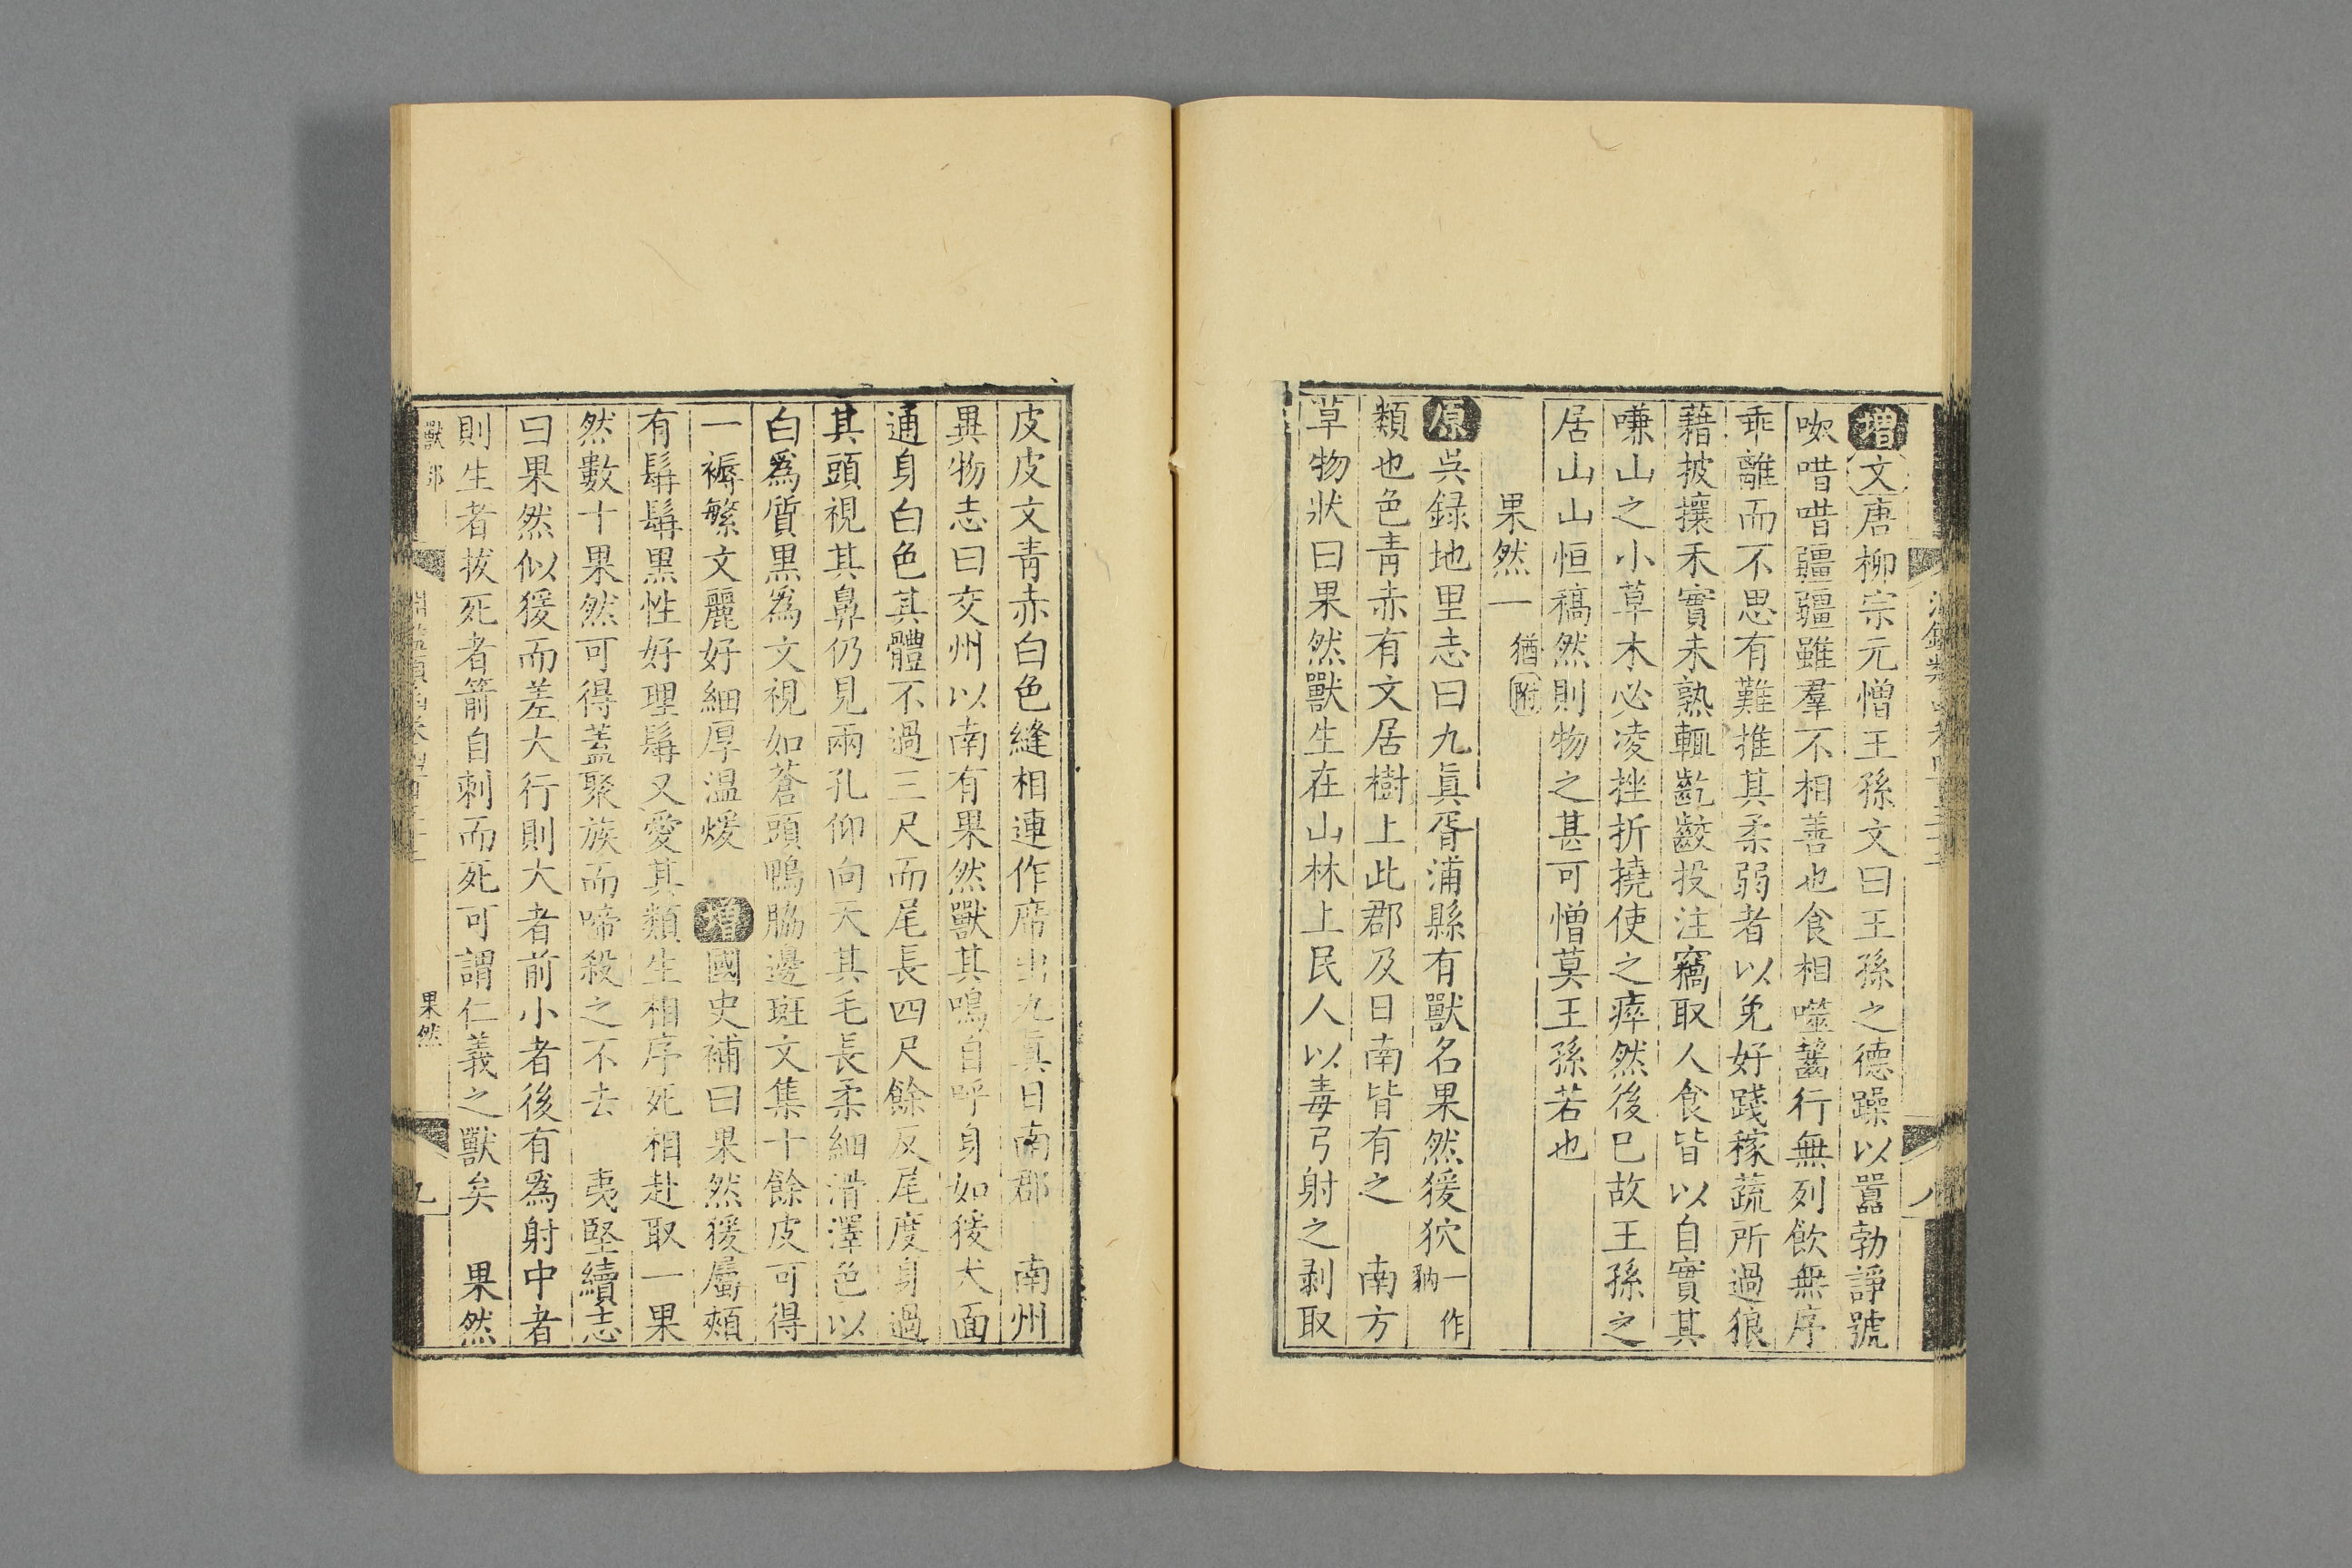 增文唐柳宗元憎王孫文曰王孫之德躁以囂勃諍號
呶唶唶彊彊雖羣不相善也食相噬齧行無列飲無序
乖離而不思有難推其柔弱者以免好踐稼蔬所過狼
藉披攘禾實未熟輒齕齩投注竊取人食皆以自實其
嗛山之小草木必凌挫折撓使之瘁然後已故王孫之
居山山恒稿然則物之甚可憎莫王孫若也
果然一 猶附
原吳録地里志曰九眞胥浦縣有獸名果然猨狖一作豽
類也色青赤有文居樹上此郡及日南皆有之 南方
草物狀曰果然獸生在山林上民人以毒弓射之剥取
皮皮文青赤白色縫相連作席出九眞日南郡 南州
異物志曰交州以南有果然獸其鳴自呼身如猨犬面
通身白色其體不過三尺而尾長四尺餘反尾度身過
其頭視其鼻仍見兩孔仰向天其毛長柔細滑澤色以
白爲質黒爲文視如蒼頭鴨脇邊斑文集十餘皮可得
一褥繁文麗好細厚温煖 增國史補曰果然猨屬頰
有髯髯黒性好理髯又愛其類生相序死相赴取一果
然數十果然可得蓋聚族而啼殺之不去 夷堅續志
曰果然似猨而差大行則大者前小者後有爲射中者
則生者拔死者箭自刺而死可謂仁義之獸矣 果然
獸部
果然
九